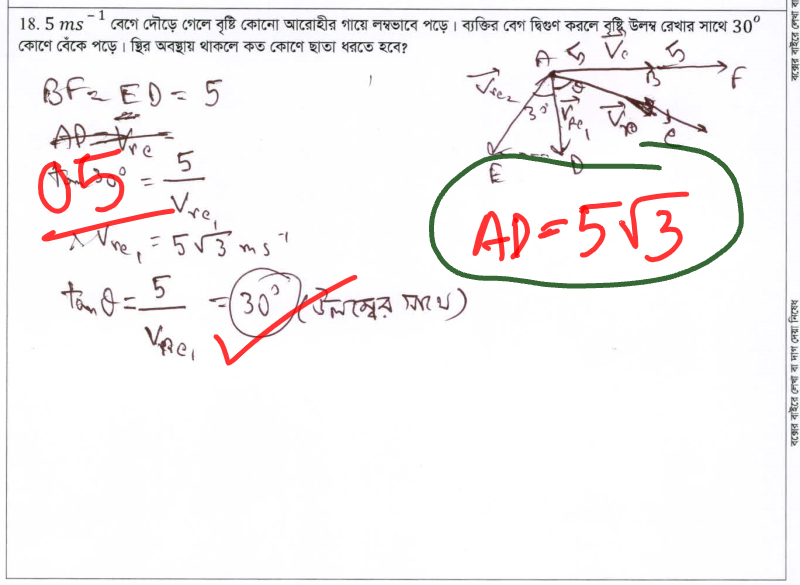 18. 5 ms⁻¹ বেগে দৌড়ে গেলে বৃষ্টি কোনো আরোহীর গায়ে লম্বভাবে পড়ে। ব্যক্তির বেগ দ্বিগুণ করলে বৃষ্টি উলম্ব রেখার সাথে 30°
কোণে বেঁকে পড়ে। স্থির অবস্থায় থাকলে কত কোণে ছাতা ধরতে হবে?
BF = ED = 5
AD = Vrc =
tan 30° = 5 / Vrc₁
05
Vrc₁ = 5√3 ms⁻¹
tanθ = 5 / Vrc₁ = 30° (উলম্বের সাথে)
A 5 Vc 5
B F
Vrc₂ 30° Vrc₁ θ
C
E D
AD = 5√3
বক্সের বাইরে লেখা বা দাগ দেয়া নিষেধ